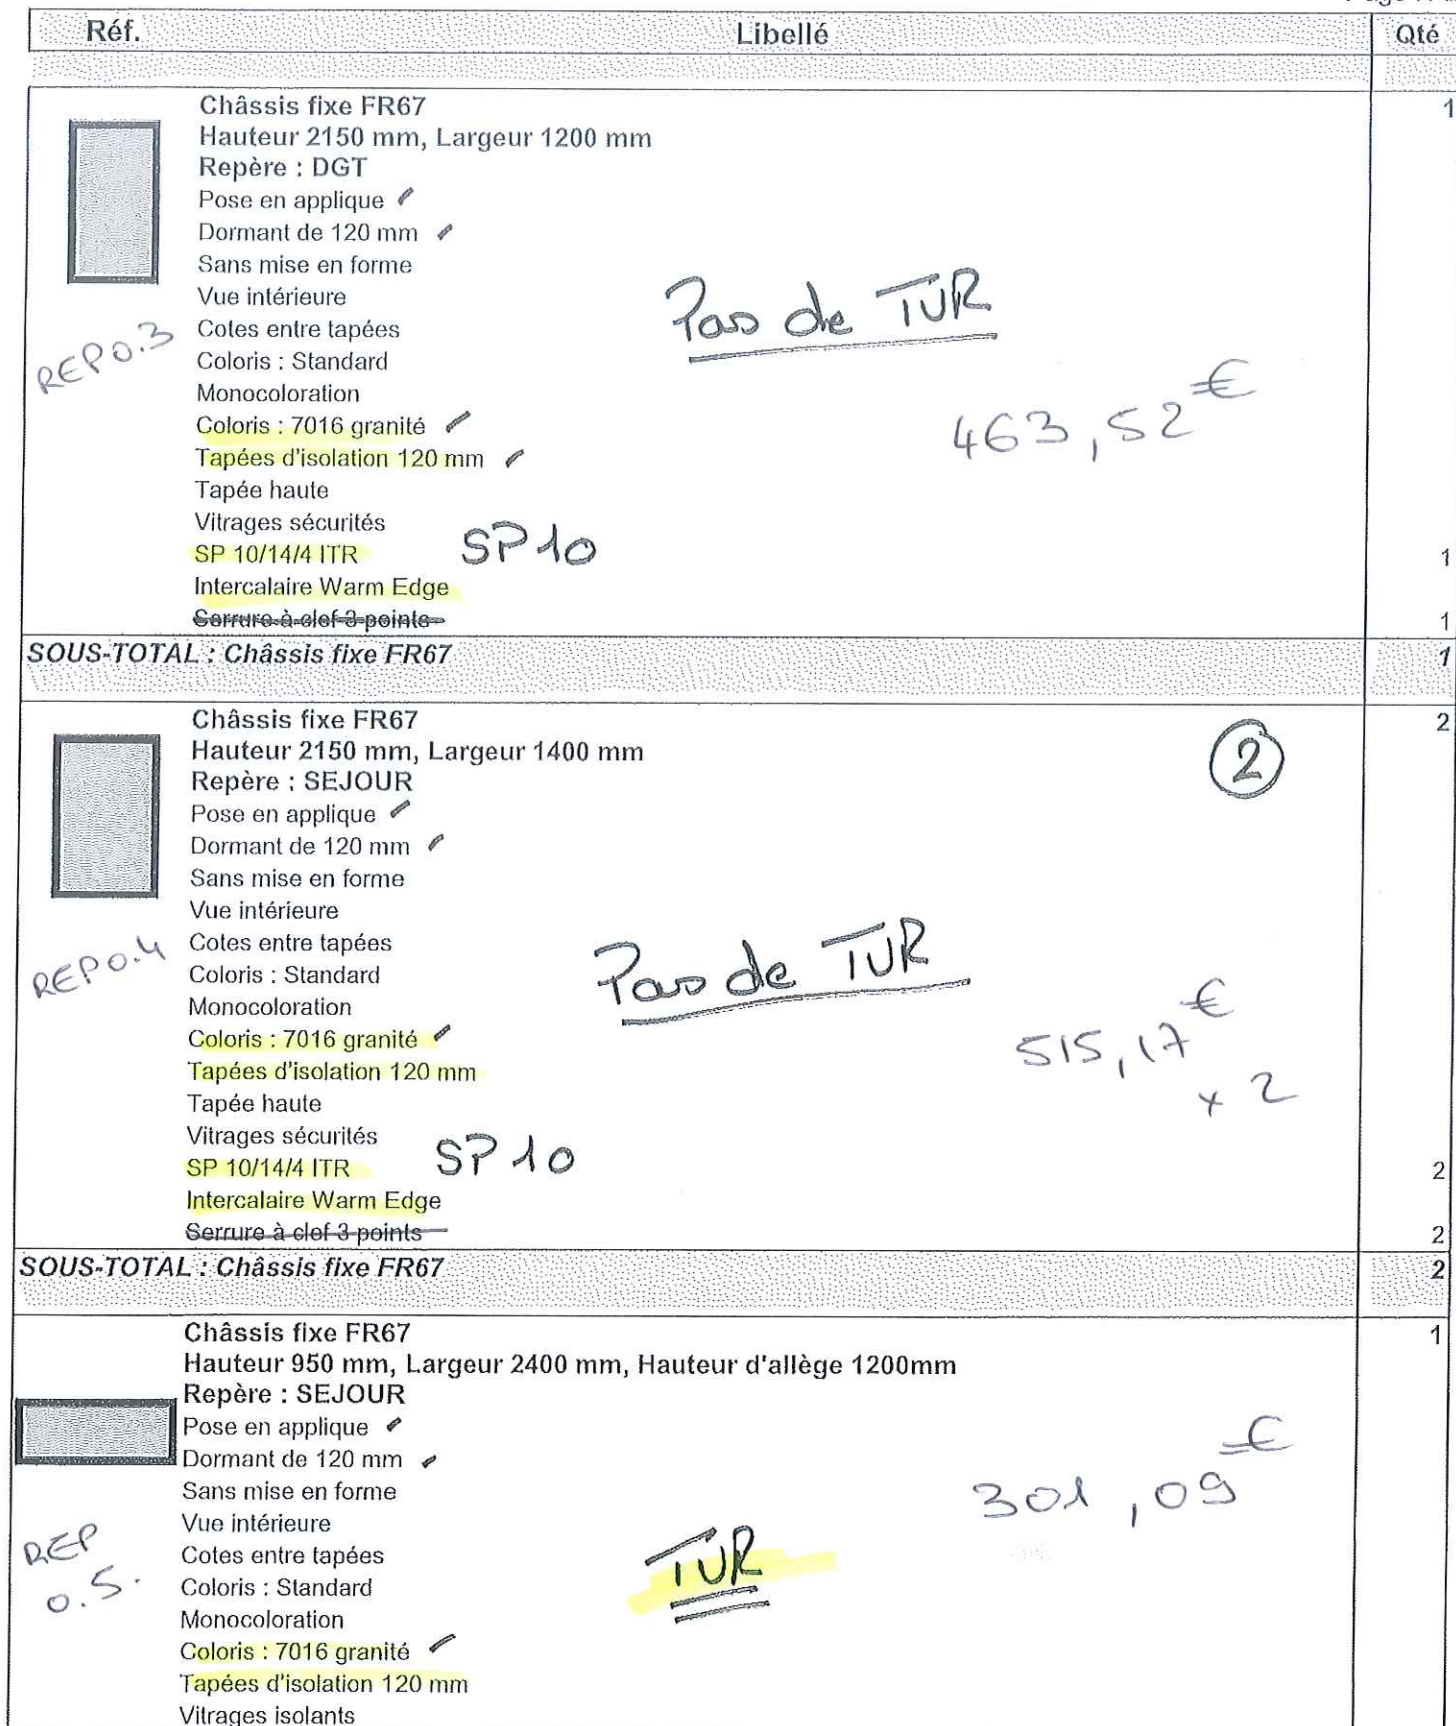 Réf. Libellé Qté
Châssis fixe FR67 1
Hauteur 2150 mm, Largeur 1200 mm
Repère : DGT
Pose en applique
Dormant de 120 mm
Sans mise en forme
Vue intérieure
Pas de TUR
Cotes entre tapées
REP0.3
Coloris : Standard
Monocoloration
463,52€
Coloris : 7016 granité
Tapées d'isolation 120 mm
Tapée haute
Vitrages sécurités
SP 10/14/4 ITR SP10 1
Intercalaire Warm Edge
Serrure à clef 3 points 1
SOUS-TOTAL : Châssis fixe FR67 1
Châssis fixe FR67 2
Hauteur 2150 mm, Largeur 1400 mm
2
Repère : SEJOUR
Pose en applique
Dormant de 120 mm
Sans mise en forme
Vue intérieure
Cotes entre tapées
Pas de TUR
REP0.4
Coloris : Standard
Monocoloration
515,17€
Coloris : 7016 granité
Tapées d'isolation 120 mm
x 2
Tapée haute
Vitrages sécurités
SP 10/14/4 ITR SP10 2
Intercalaire Warm Edge
Serrure à clef 3 points 2
SOUS-TOTAL : Châssis fixe FR67 2
Châssis fixe FR67 1
Hauteur 950 mm, Largeur 2400 mm, Hauteur d'allège 1200mm
Repère : SEJOUR
Pose en applique
Dormant de 120 mm
Sans mise en forme
301,09€
Vue intérieure
REP
Cotes entre tapées
TUR
0.5.
Coloris : Standard
Monocoloration
Coloris : 7016 granité
Tapées d'isolation 120 mm
Vitrages isolants